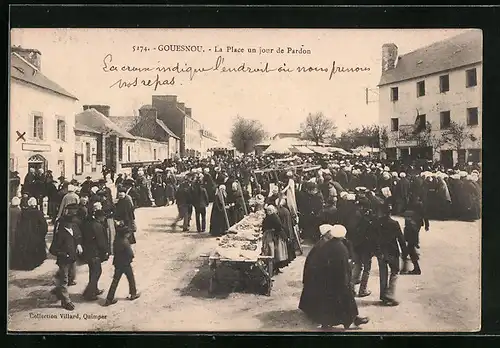 5174. - GOUESNOU. - La Place un jour de Pardon
La croix indique l'endroit où nous prenons
nos repas.
X
Collection Villard, Quimper